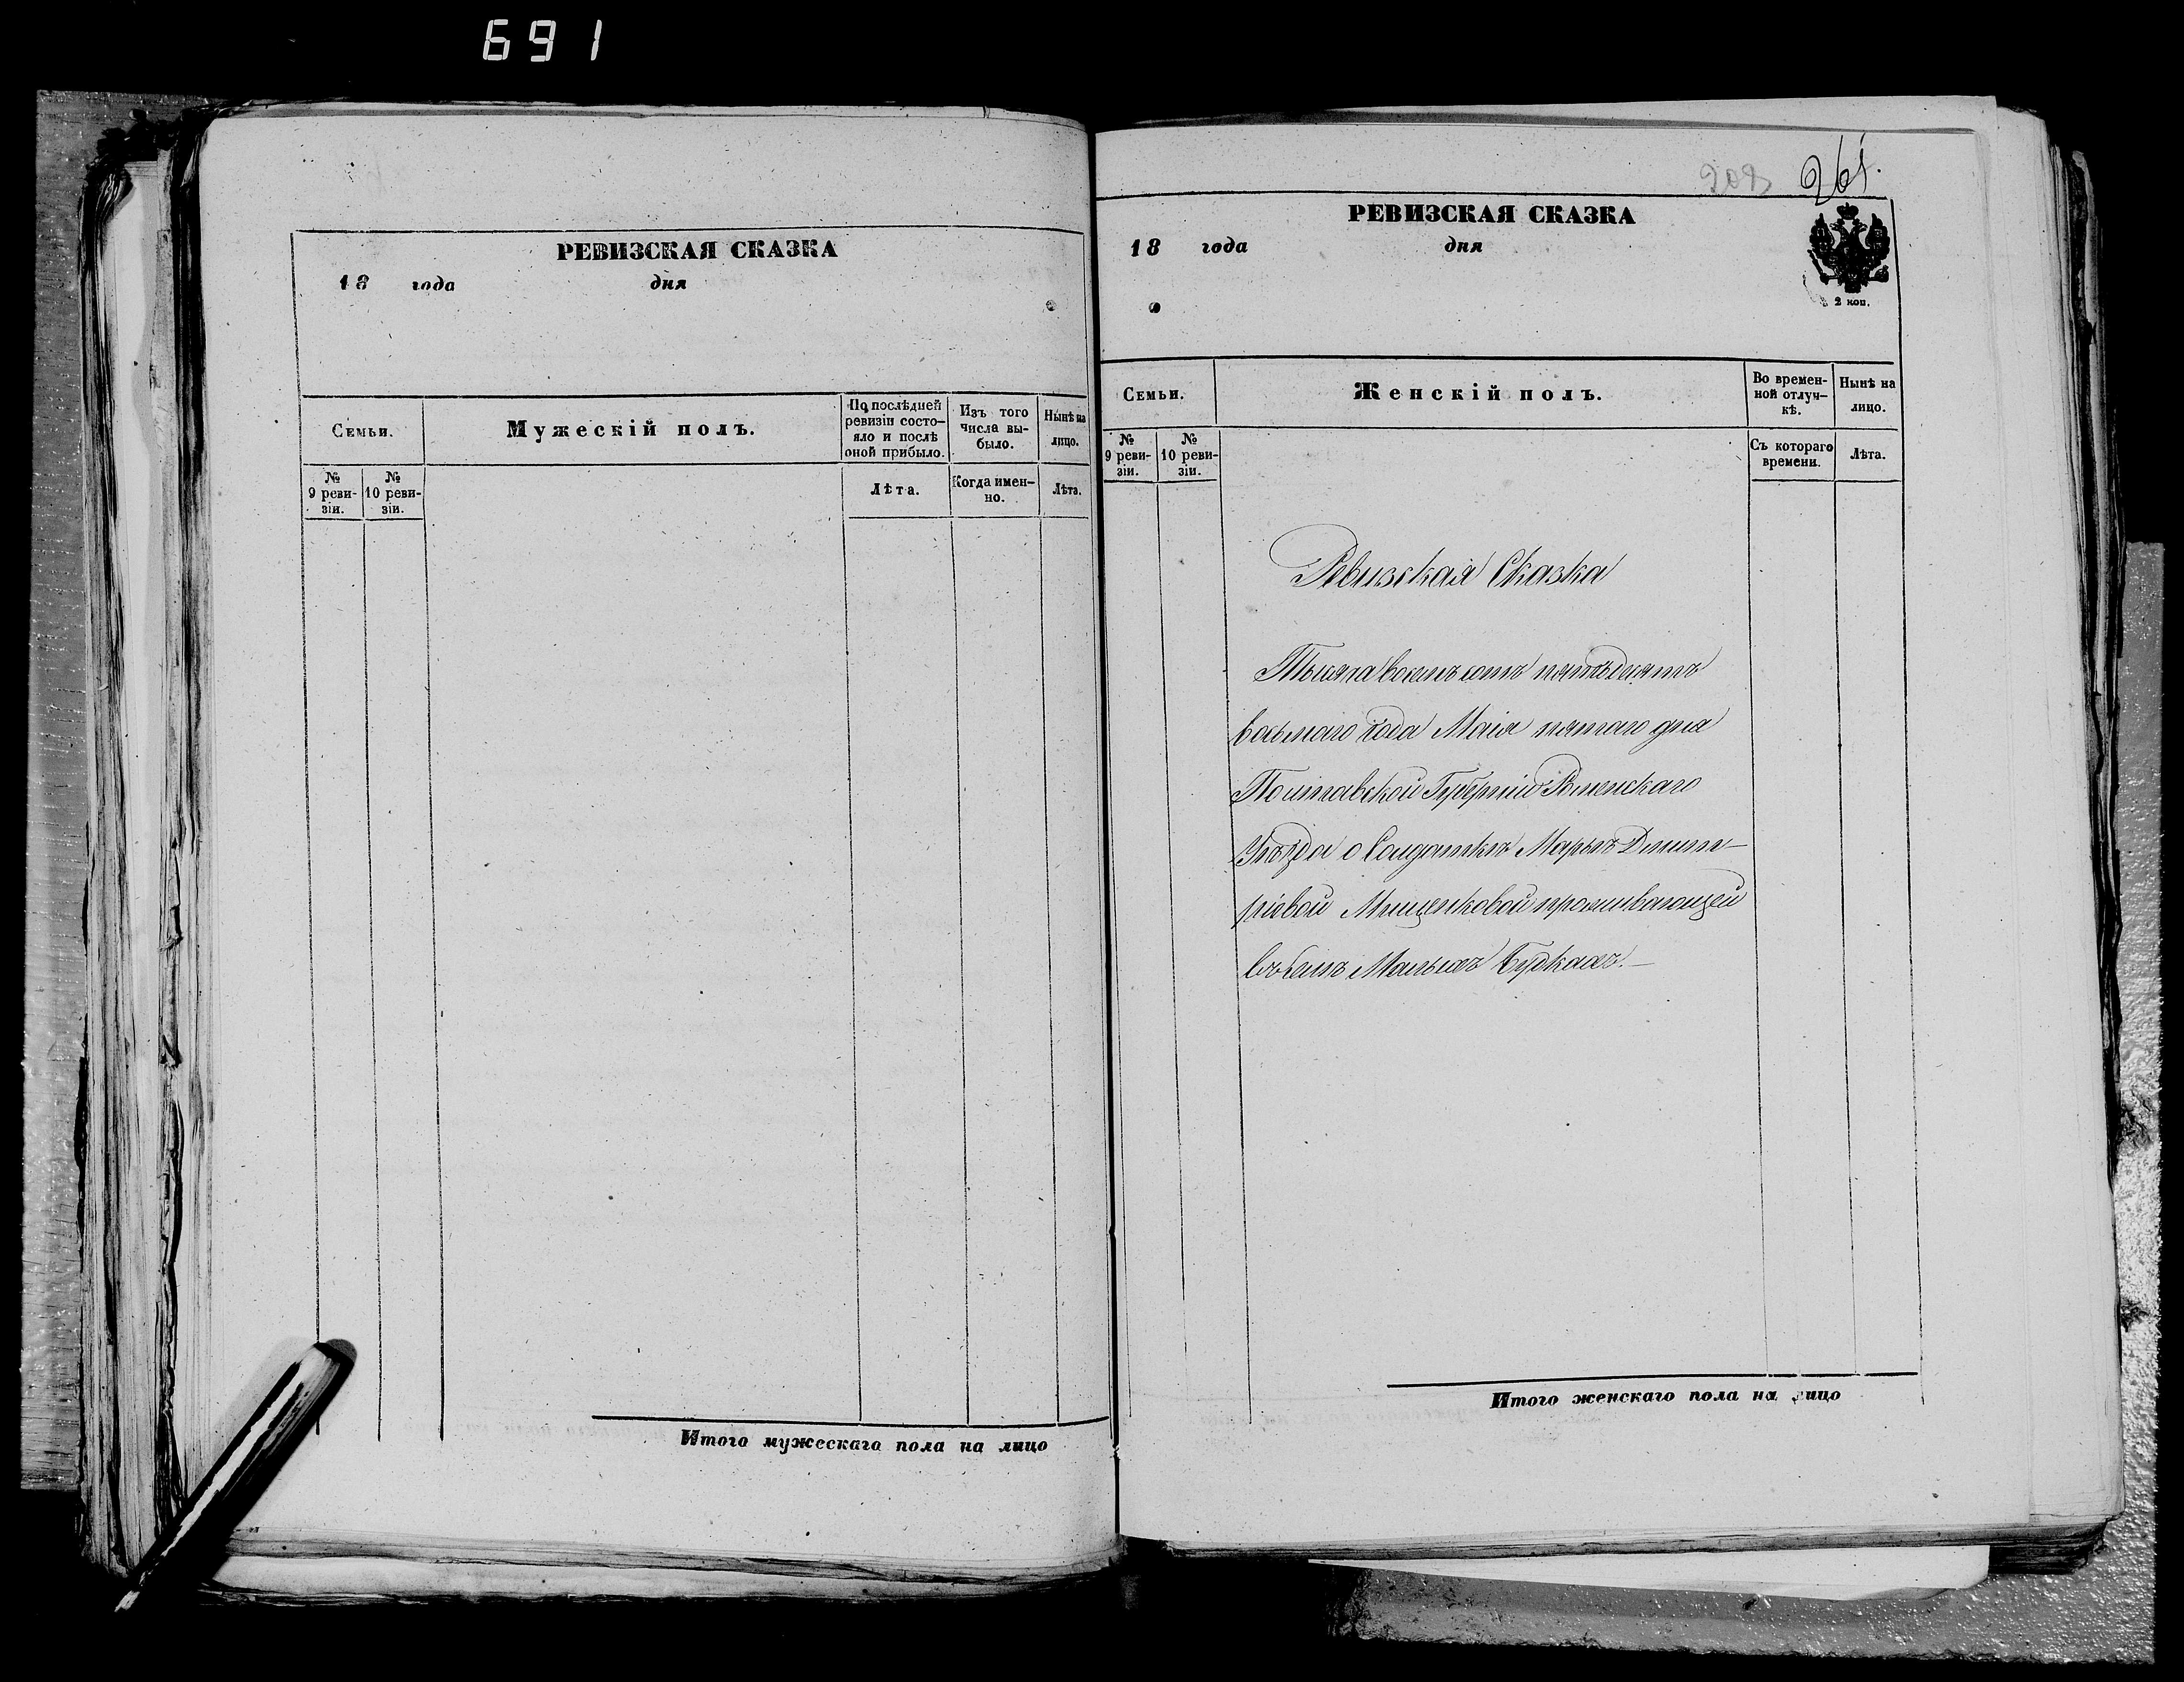 691
РЕВИЗСКАЯ СКАЗКА
18 года дня
Семьи.
Мужескій полъ.
По послѣдней ревизіи состо-
яло и послѣ
оной прибыло.
Изъ того
числа вы-
было.
Нынѣ на
лицо.
№
9 реви-
зіи.
№
10 реви-
зіи.
Лѣта.
Когда имен-
но.
Лѣта.
Итого мужескаго пола на лицо
261.
РЕВИЗСКАЯ СКАЗКА
18 года дня
2 коп.
Семьи.
Женскій полъ.
Во времен-
ной отлуч-
кѣ.
Нынѣ на
лицо.
№
9 реви-
зіи.
№
10 реви-
зіи.
Съ котораго
времени.
Лѣта.
Ревизская Сказка
Тысяча восемьсотъ пятьдесятъ
восьмаго года Маія пятаго дня
Полтавской Губерніи Роменскаго
Уѣзда о Солдаткѣ Марьѣ Дмит-
ріевой Мищенковой проживающей
въ селѣ Малыхъ Будкахъ.—
Итого женскаго пола на лицо